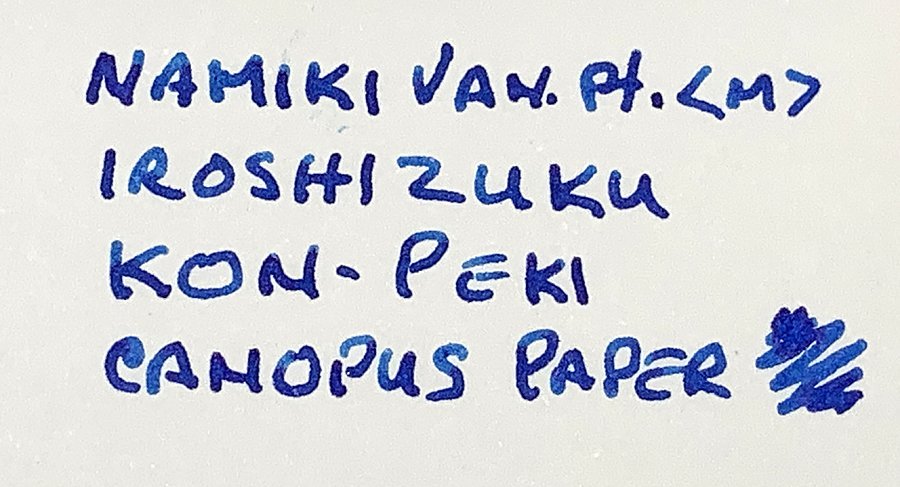 NAMIKI VAN. Pt. <M>
IROSHIZUKU
KON-PEKI
CANOPUS PAPER